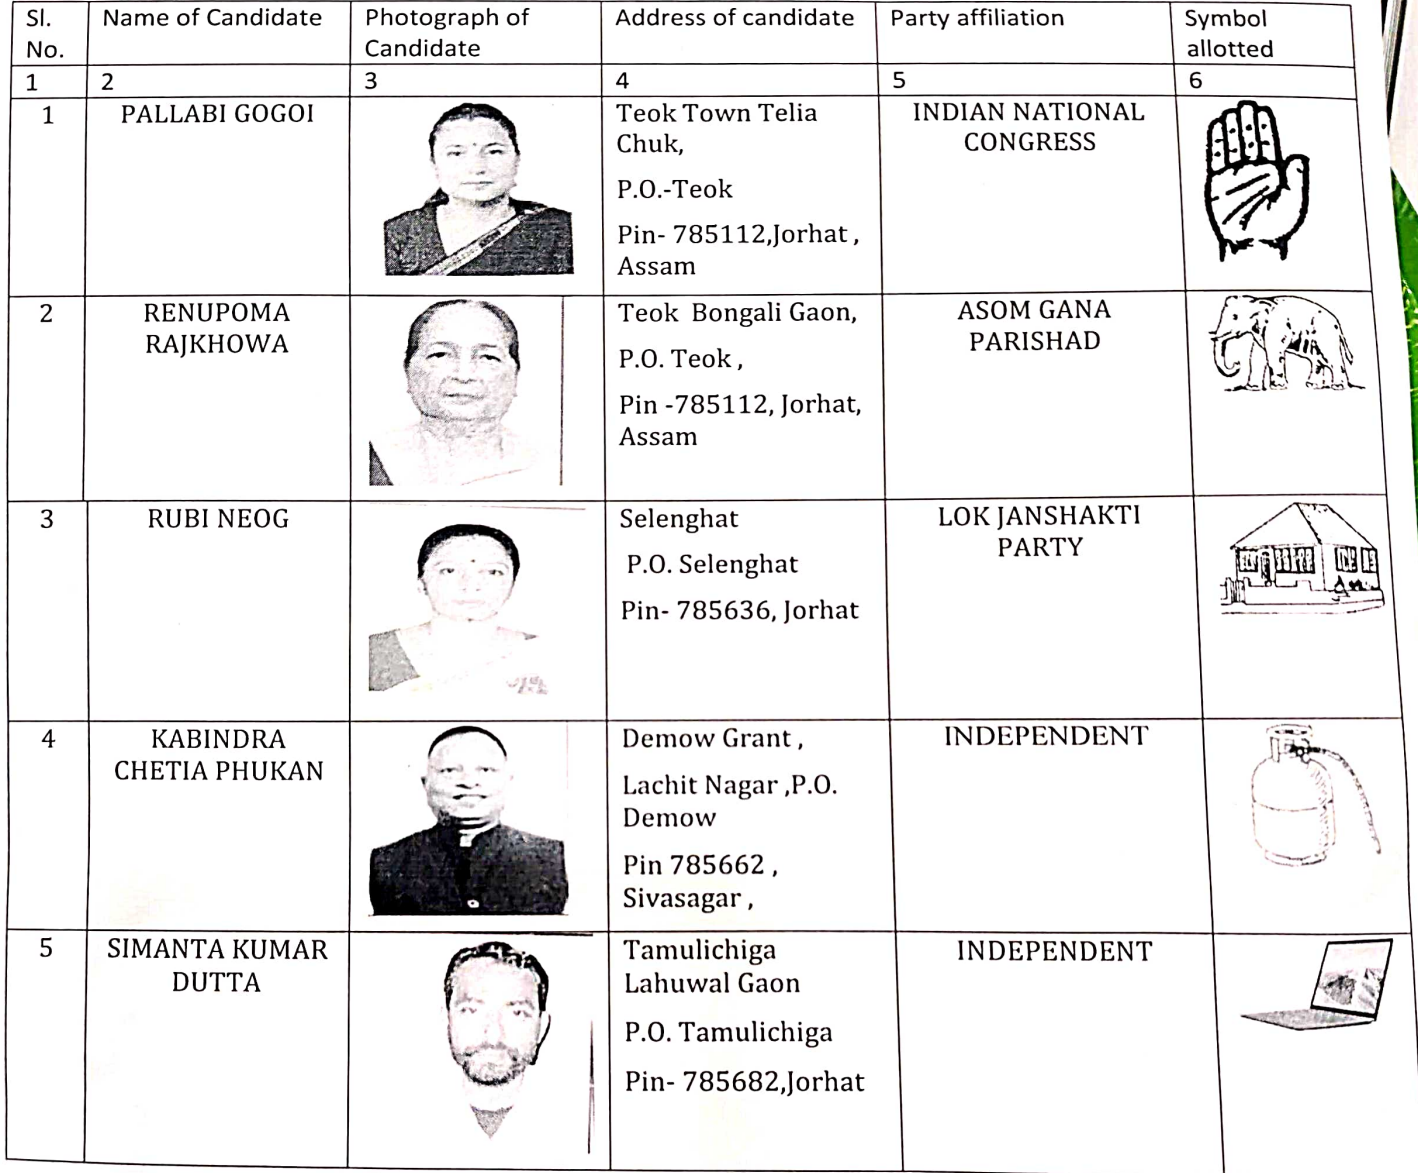 Sl. No.
Name of Candidate
Photograph of Candidate
Address of candidate
Party affiliation
Symbol allotted
1
2
3
4
5
6
1
PALLABI GOGOI
Teok Town Telia
Chuk,
P.O.-Teok
Pin- 785112,Jorhat ,
Assam
INDIAN NATIONAL
CONGRESS
2
RENUPOMA
RAJKHOWA
Teok Bongali Gaon,
P.O. Teok ,
Pin -785112, Jorhat,
Assam
ASOM GANA
PARISHAD
3
RUBI NEOG
Selenghat
P.O. Selenghat
Pin- 785636, Jorhat
LOK JANSHAKTI
PARTY
4
KABINDRA
CHETIA PHUKAN
Demow Grant ,
Lachit Nagar ,P.O.
Demow
Pin 785662 ,
Sivasagar ,
INDEPENDENT
5
SIMANTA KUMAR
DUTTA
Tamulichiga
Lahuwal Gaon
P.O. Tamulichiga
Pin- 785682,Jorhat
INDEPENDENT